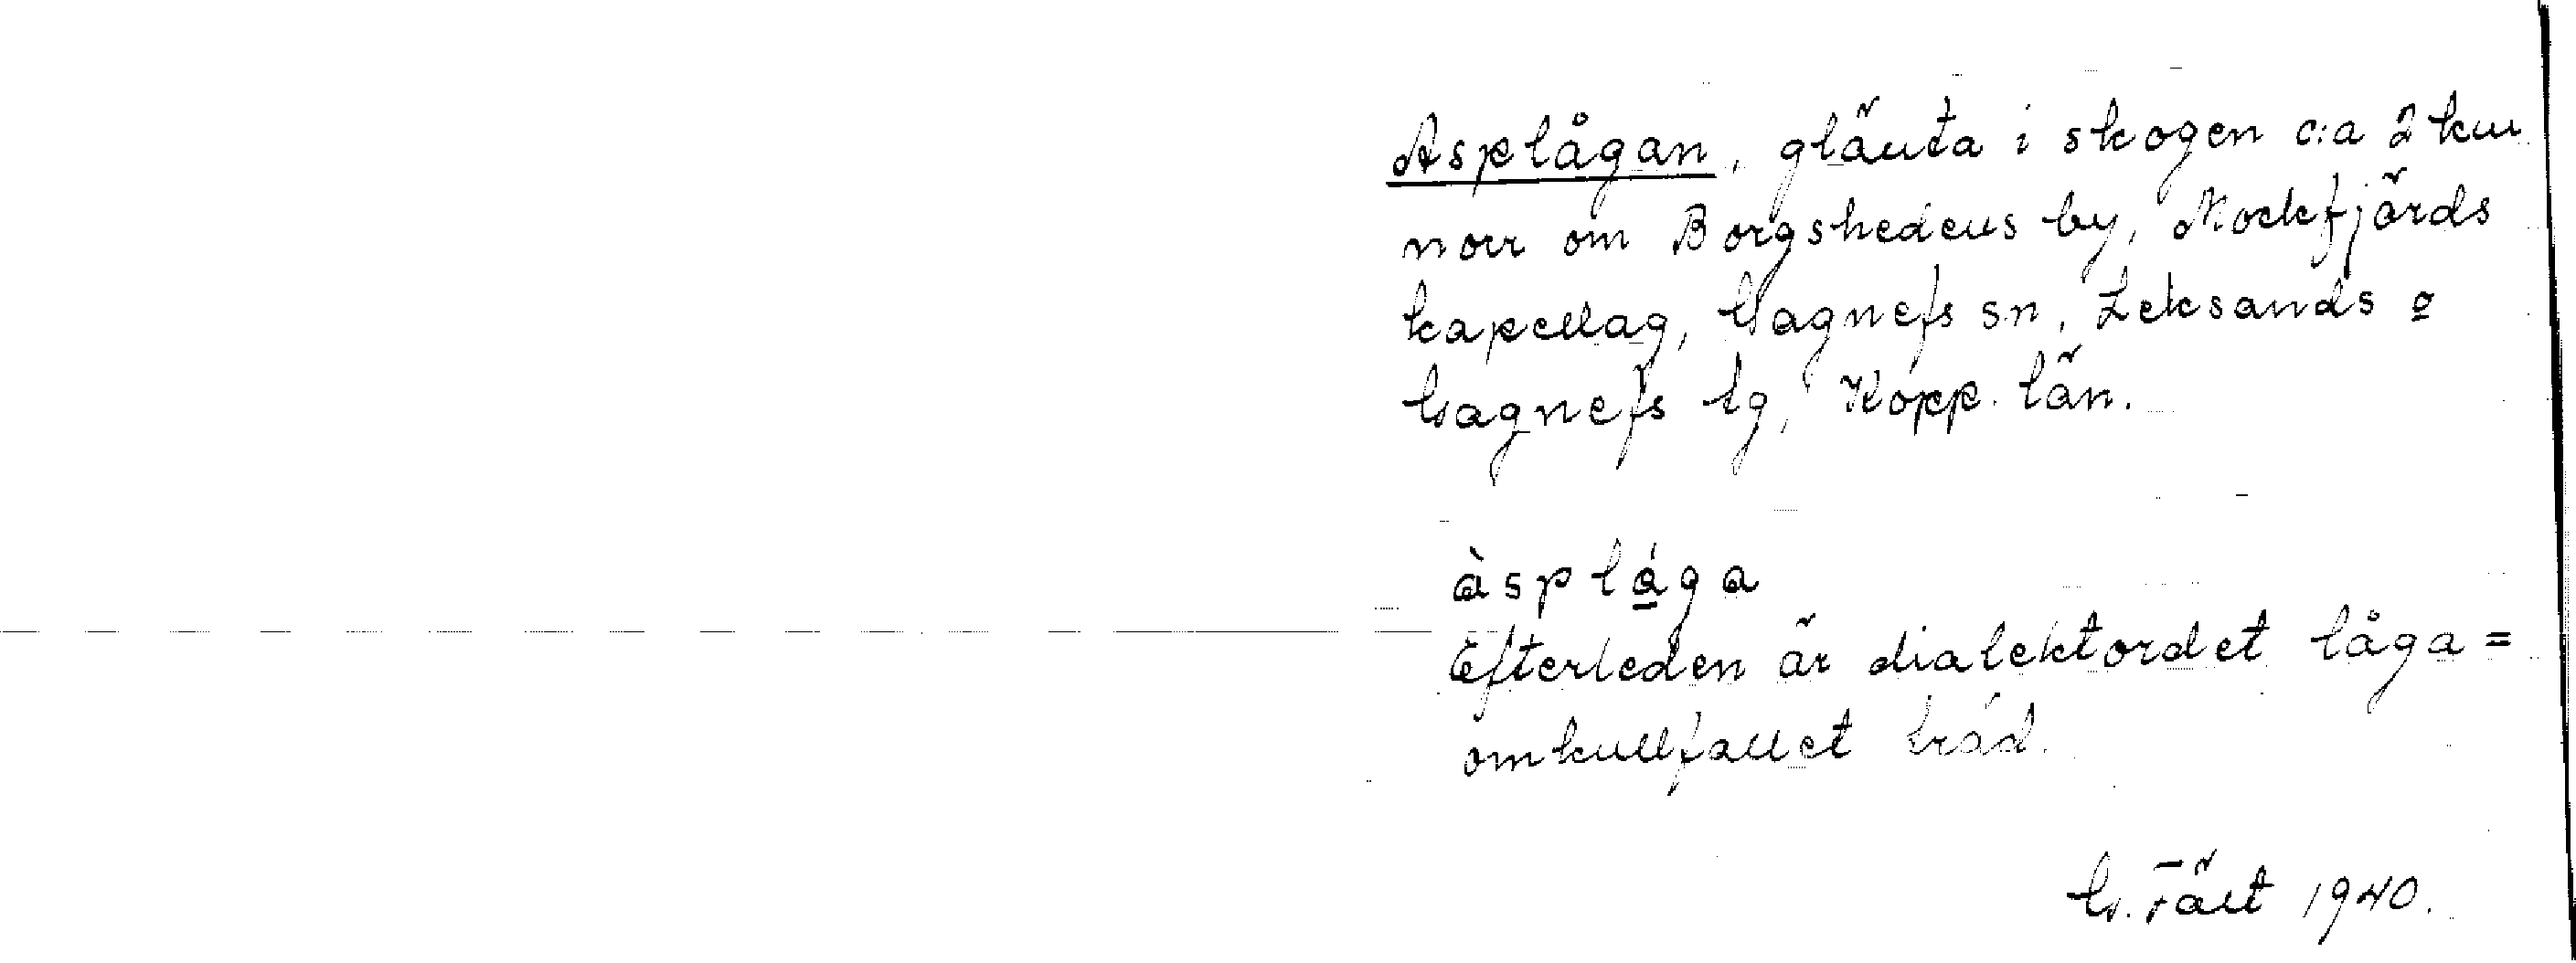 Asplågan, glänta i skogen c:a 2 km
norr om Borgshedens by, Mockfjärds
kapellag, Gagnefs sn, Leksands o
Gagnefs tg, Kopp. län.
àsplága
Efterleden är dialektordet låga =
omkullfallet träd.
G. Tält 1940.